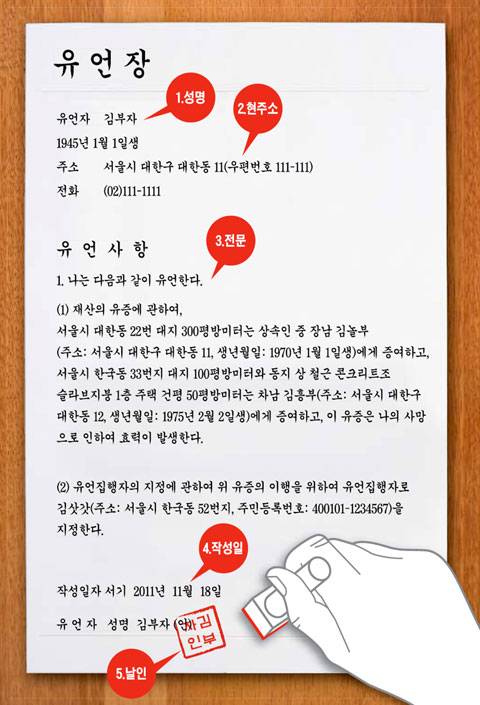 유언장
1.성명
유언자 김부자
2.현주소
1945년 1월 1일생
주소 서울시 대한구 대한동 11(우편번호 111-111)
전화 (02)111-1111
유언사항
3.전문
1. 나는 다음과 같이 유언한다.
(1) 재산의 유증에 관하여,
서울시 대한동 22번 대지 300평방미터는 상속인 중 장남 김놀부
(주소: 서울시 대한구 대한동 11, 생년월일: 1970년 1월 1일생)에게 증여하고,
서울시 한국동 33번지 대지 100평방미터와 동지 상 철근 콘크리트조
슬라브지붕 1층 주택 건평 50평방미터는 차남 김흥부(주소: 서울시 대한구
대한동 12, 생년월일: 1975년 2월 2일생)에게 증여하고, 이 유증은 나의 사망
으로 인하여 효력이 발생한다.
(2) 유언집행자의 지정에 관하여 위 유증의 이행을 위하여 유언집행자로
김삿갓(주소: 서울시 한국동 52번지, 주민등록번호: 400101-1234567)을
지정한다.
4.작성일
작성일자 서기 2011년 11월 18일
유언자 성명 김부자 (인)
김부
자인
5.날인